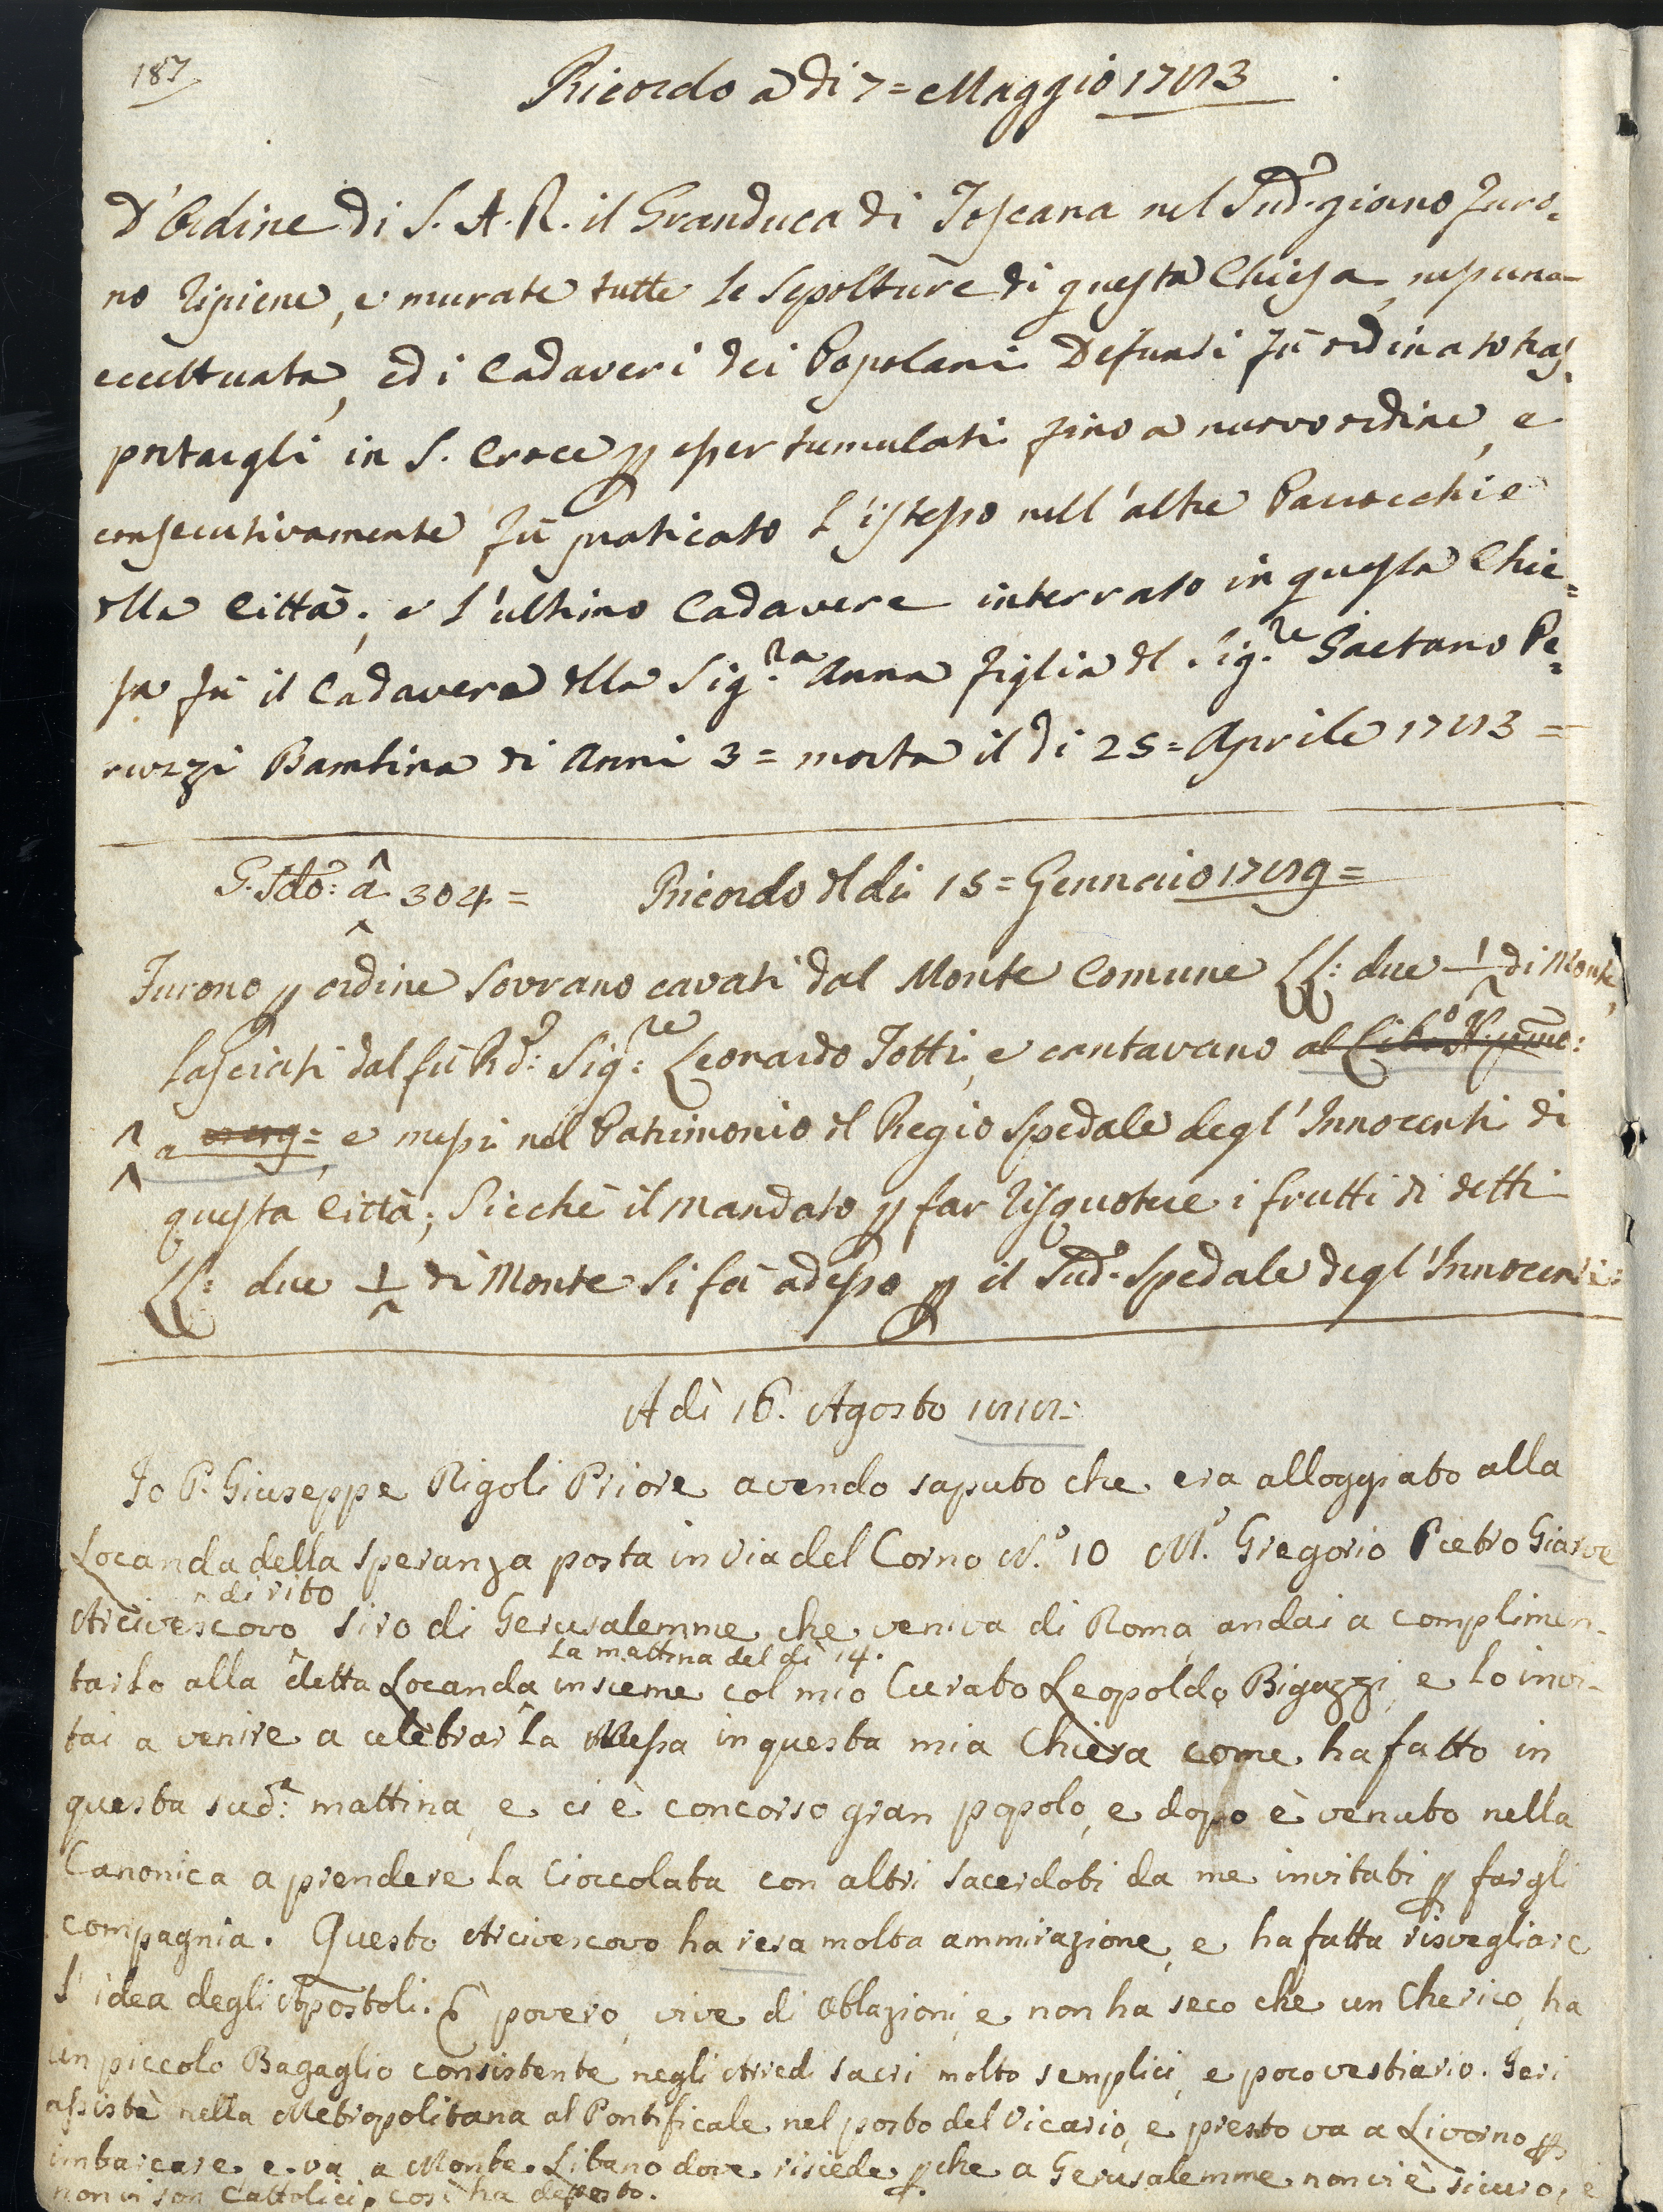 187
Ricordo a di 7 = Maggio 1783
D'Ordine di S. A. R. il Granduca di Toscana nel Sud.º giorno furo=
no ripiene, e murate tutte le Sepolture di questa Chiesa, nessuna
eccettuata, ed i Cadaveri dei Popolani Defunti fù ordinato tras=
portargli in S. Croce p esser tumulati fino a nuovo ordine, e
consecutivamente fù praticato l'istesso nell'altre Parrocchie
dlla Città; e l'ultimo Cadavere interrato in questa Chie=
sa fù il Cadavere dlla Sig.ra Anna figlia dl Sig.re Gaetano Pe=
ruzzi Bambina di Anni 3 = morta il di 25 = Aprile 1783 =
S. Sdo: a 304 = Ricordo dl di 15 = Gennaio 1789 =
Furono p ordine Sovrano cavati dal Monte Comune LL: due 1/ di Monte,
lasciati dal fù Rd: Sig:re Leonardo Totti, e cantavano al Libro
a e messi nel Patrimonio dl Regio Spedale degl'Innocenti di
questa Città; Sicchè il mandato p far risquotere i frutti di detti
LL: due 1/ di Monte si fà adesso p il Sud.º Spedale degl'Innocenti:
A dì 16. Agosto 1818.
Io P. Giuseppe Rigoli Priore avendo saputo che era alloggiato alla
Locanda della Speranza posta in via del Corno N.º 10 M.r Gregorio Pietro Giarve
di rito
Arcivescovo Siro di Gerusalemme che veniva di Roma, andai a complimen-
la mattina del dì 14.
tarlo alla detta Locanda insieme col mio Curato Leopoldo Bigazzi, e lo invi-
tai a venire a celebrar la Messa in questa mia Chiesa come ha fatto in
questa sud.ª mattina, e ci è concorso gran popolo, e dopo è venuto nella
Canonica a prendere la Cioccolata con altri Sacerdoti da me invitati p fargli
compagnia. Questo Arcivescovo ha resa molta ammirazione, e ha fatta risvegliare
l'idea degli Apostoli. È povero, vive di oblazioni, e non ha seco che un Cherico, ha
un piccolo Bagaglio consistente negli Arredi sacri molto semplici, e poco vestiario. Ieri
assistè nella Metropolitana al Pontificale nel posto del Vicario, e presto va a Livorno p
imbarcare, e va a Monte Libano dove risiede, p che a Gerusalemme non vi è sicuro, e
non vi son Cattolici, così ha deposto.